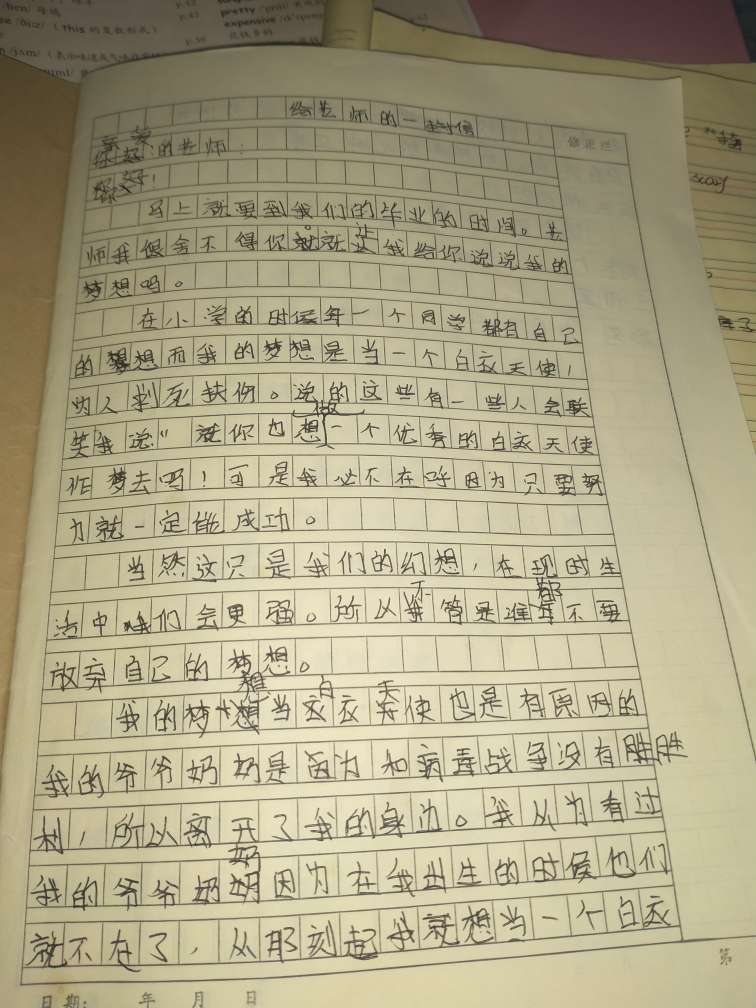 给老师的一封信
亲爱的老师:
您好!
马上就要到我们的毕业的时间。老
师我很舍不得你就让我给你说说我的
梦想吗。
在小学的时候每一个同学都有自己
的梦想而我的梦想是当一个白衣天使,
为人刺死扶伤。说的这些有一些人会联
笑我说"就你也想做一个优秀的白衣天使
作梦去吗!可是我必不在呼因为只要努
力就一定能成功。
当然这只是我们的幻想,在现时生
活中我们会更强。所以不管是谁都不要
放弃自己的梦想。
我的梦想想当白衣天使也是有原因的
我的爷爷奶奶是因为和病毒战争没有胜胜
利,所以离开了我的身边。我从为有过
我的爷爷奶奶因为在我出生的时候他们
就不在了,从那刻起我就想当一个白衣
修正栏
第
日期: 年 月 日
pretty
expensive
p.42
p.43